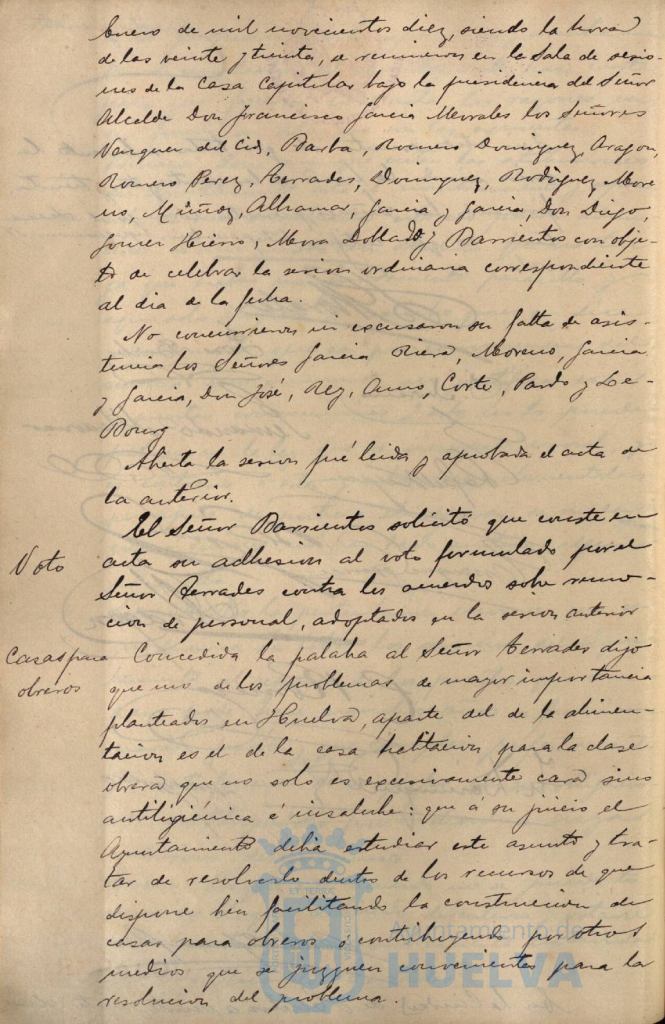 Enero de mil novecientos diez, siendo la hora
de las veinte y treinta, se reunieron en la Sala de sesio-
nes de la Casa Capitular bajo la presidencia del Señor
Alcalde Don Francisco Garcia Morales los Señores
Vazquez del Cid, Barba, Romero Dominguez, Aragon,
Romero Perez, Terrades, Dominguez, Rodriguez More-
no, Muñoz, Alhamar, Garcia y Garcia, Don Diego,
Gomez Hierro, Mora Doblado y Barrientos con obje-
to de celebrar la sesion ordinaria correspondiente
al dia de la fecha.
No concurrieron ni excusaron su falta de asis-
tencia los Señores Garcia Riera, Moreno, Garcia
y Garcia, Don José, Rey, Corte, Pardo y Le-
Bourg
Abierta la sesion fué leida y aprobada el acta de
la anterior.
El Señor Barrientos solicitó que conste en
Voto
acta su adhesion al voto formulado por el
Señor Terrades contra los acuerdos sobre remo-
cion de personal, adoptados en la sesion anterior
Casas para obreros
Concedida la palabra al Señor Terrades dijo
que uno de los problemas de mayor importancia
planteados en Huelva, aparte del de la alimen-
tacion es el de la casa habitacion para la clase
obrera que no solo es excesivamente cara sino
antihigiénica é insalubre: que á su juicio el
Ayuntamiento debia estudiar este asunto y tra-
tar de resolverlo dentro de los recursos de que
dispone bien facilitando la construccion de
casas para obreros ó contribuyendo por otros
medios que se juzguen convenientes para la
resolucion del problema.
Ayuntamiento de
HUELVA